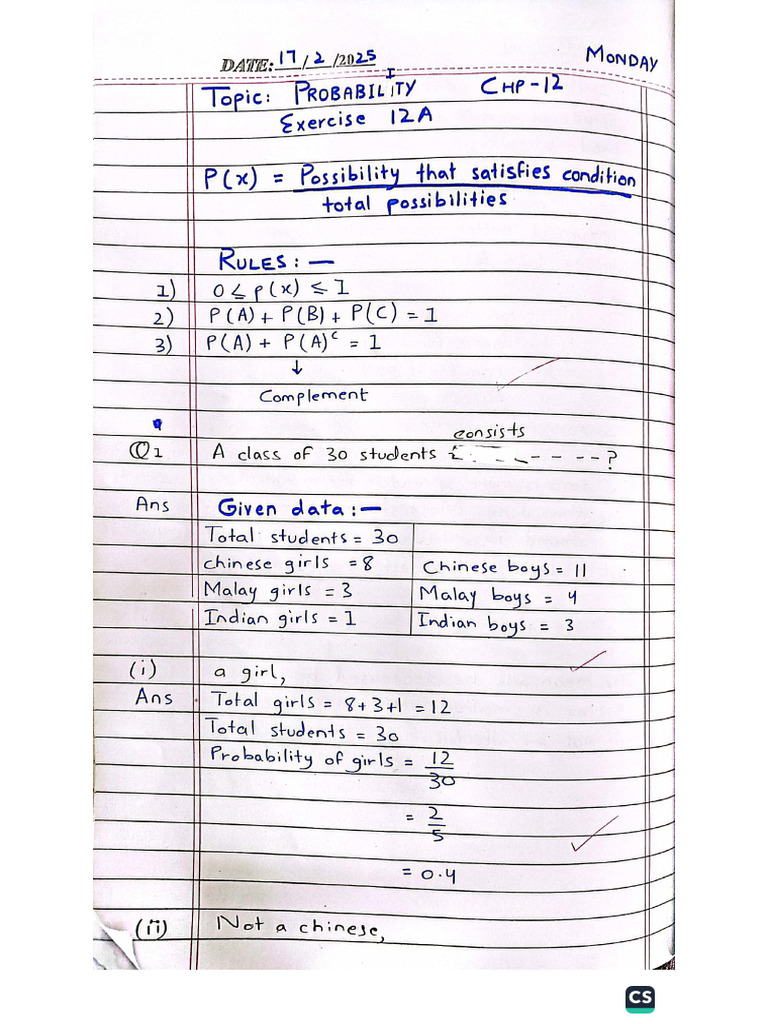 DATE: 17 / 2 / 2025 MONDAY
Topic: PROBABILITY CHP-12
Exercise 12A
P(x) = Possibility that satisfies condition
total possibilities
RULES: —
1) 0 ≤ p(x) ≤ 1
2) P(A) + P(B) + P(C) = 1
3) P(A) + P(A)ᶜ = 1
↓
Complement
consists
Q1 A class of 30 students - - - - ?
Ans Given data: —
Total students = 30
chinese girls = 8 Chinese boys = 11
Malay girls = 3 Malay boys = 4
Indian girls = 1 Indian boys = 3
(i) a girl,
Ans Total girls = 8+3+1 = 12
Total students = 30
Probability of girls = 12
30
= 2
5
= 0.4
(ii) Not a chinese,
CS